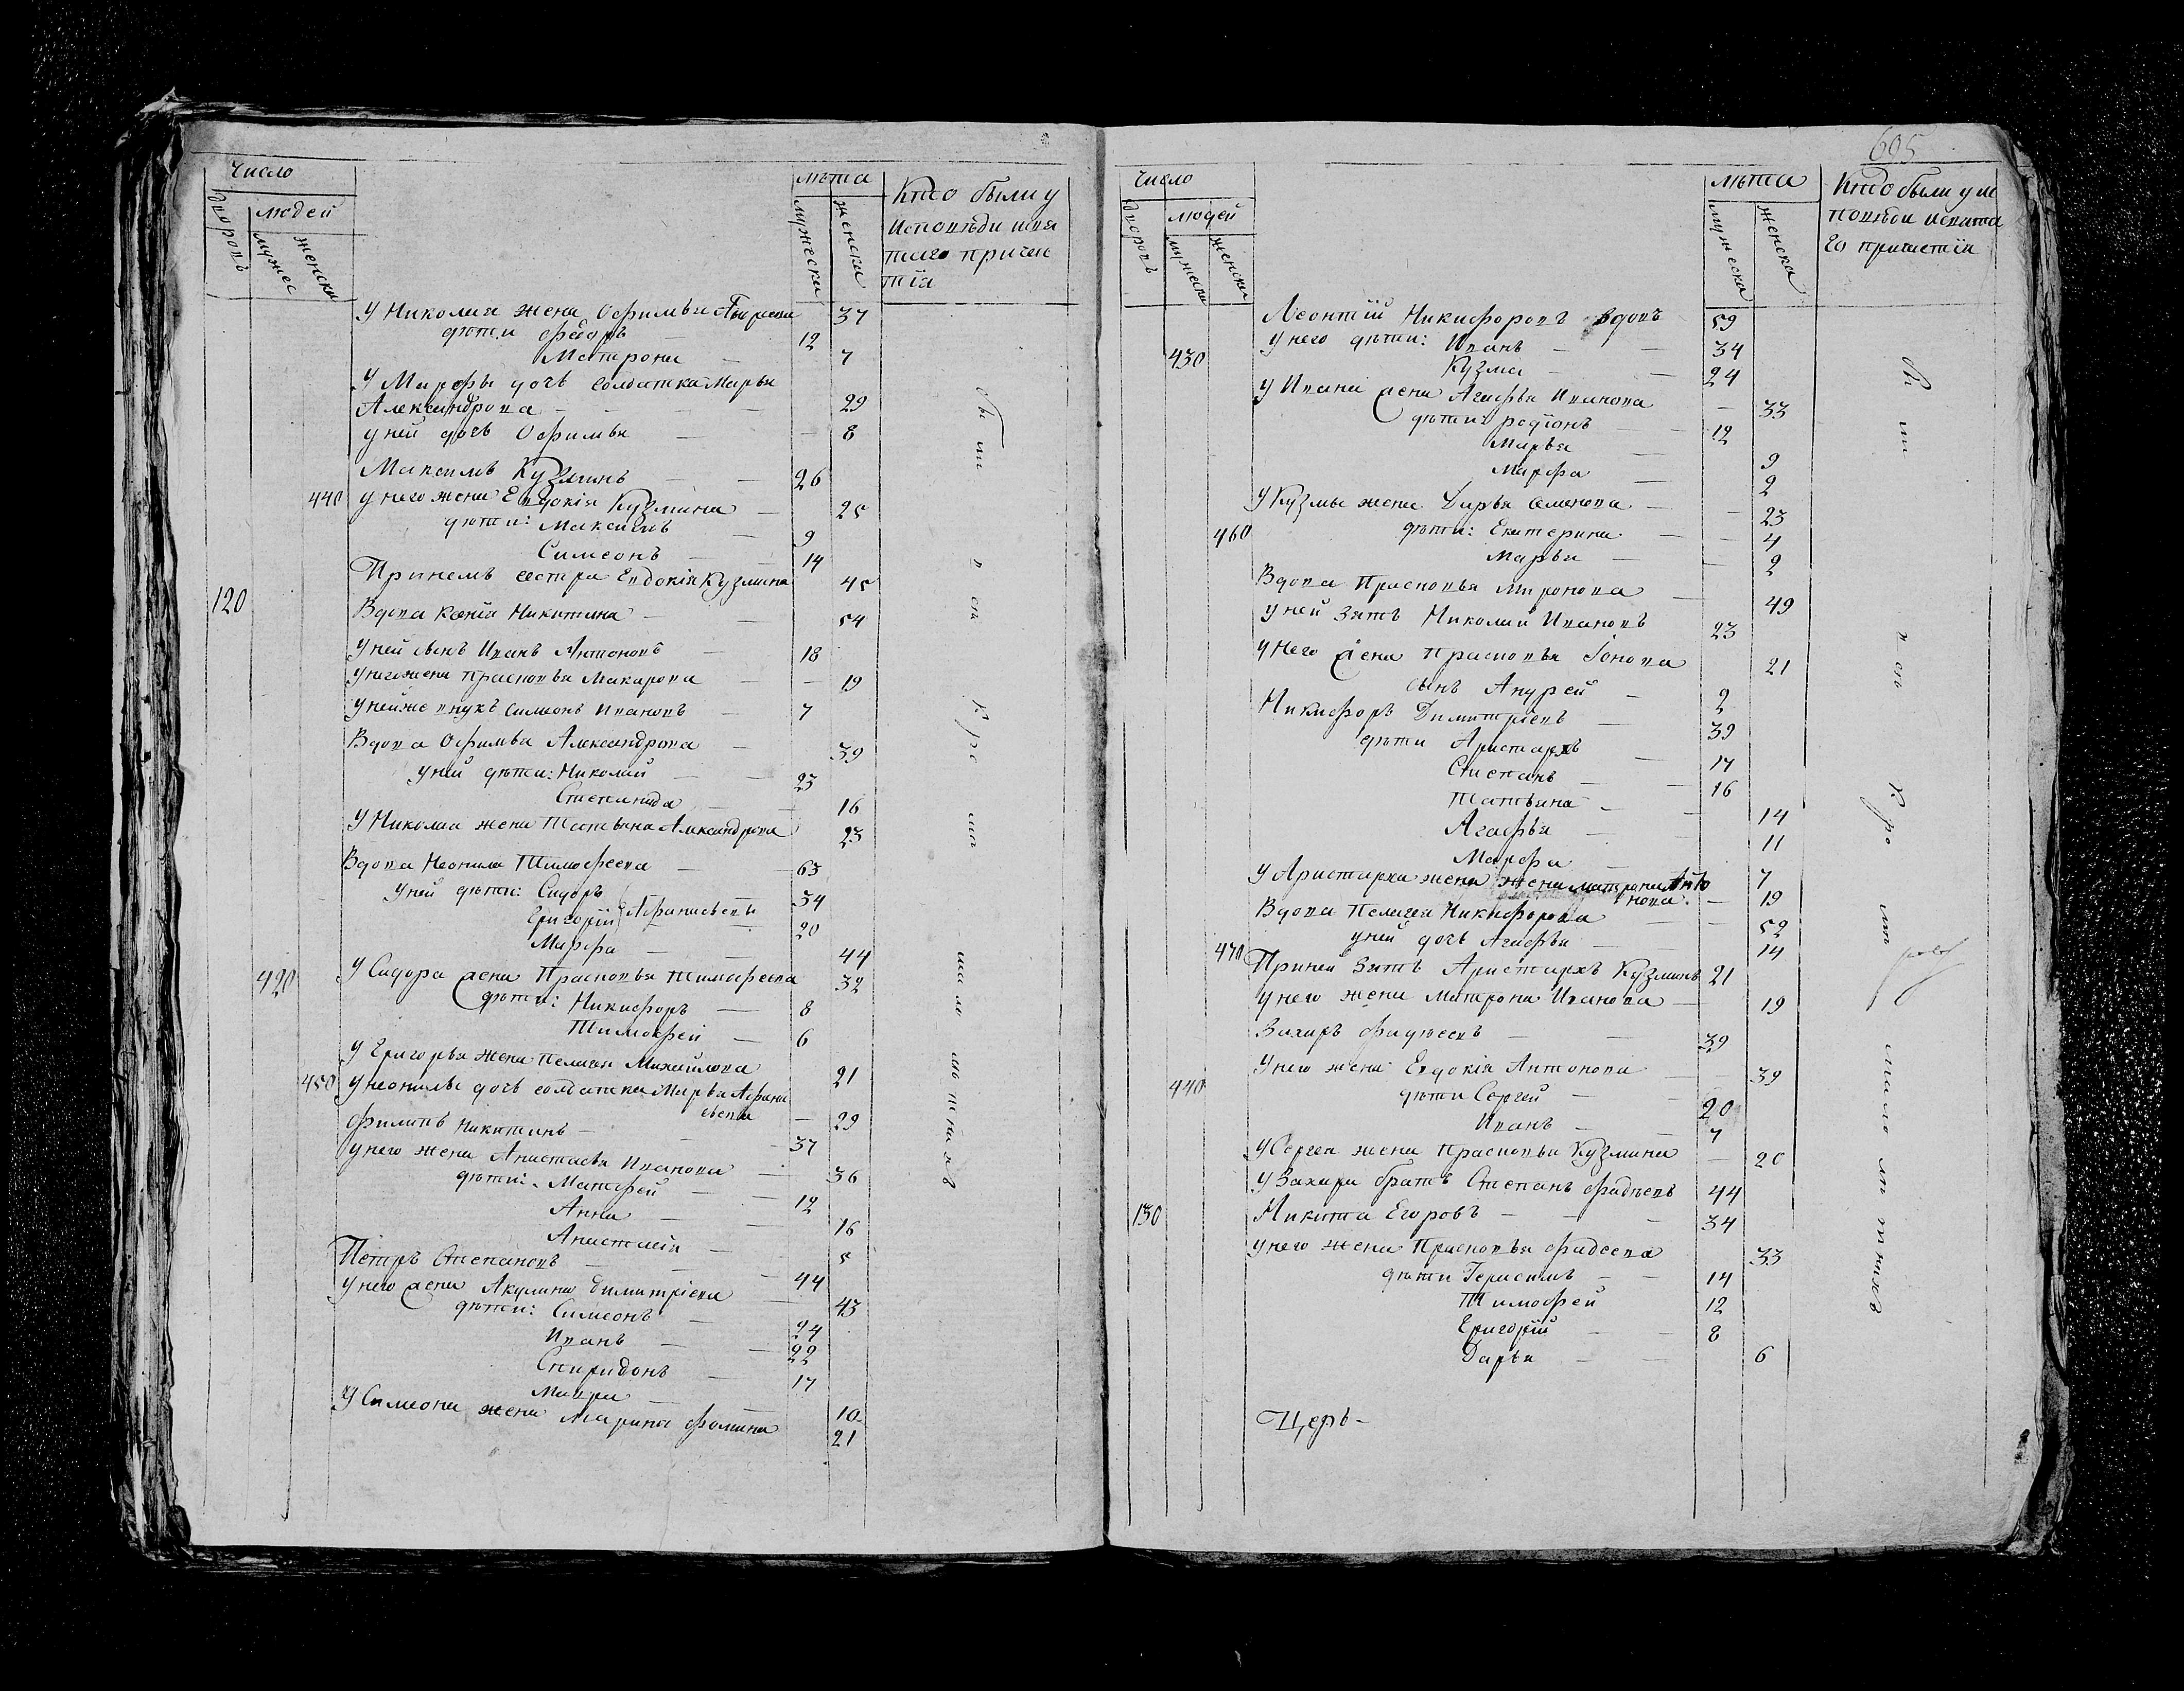 Число
дворовъ
людей
мужес
женски
лѣта
мужески
женски
Кто были у
исповѣди и свя
таго причас
тїя
У Николая жена Офимья
37
дѣти Ѳедоръ
12
Матрона
7
У Марфы дочь солдатка Марья
Александрова
29
у ней дочь Офимья
8
Максимъ Кузминъ
26
440
у него жена Евдокїя Кузмина
25
дѣти: Максимъ
9
Симеонъ
14
При немъ сестра Евдокїя Кузмина
45
120
Вдова Ксенїя Никитина
54
У ней сынъ Иванъ Антоновъ
18
у него жена Прасковья Макарова
19
У ней же внукъ Симеонъ Ивановъ
7
Вдова Офимья Александрова
39
у ней дѣти: Николай
23
Степанида
16
У Николая жена Татьяна Александрова
23
Вдова Неонила Тимофеева
63
У ней дѣти: Сидоръ
34
Григорїй Афанасьевы
20
Марфа
44
420
У Сидора жена Прасковья Тимофеева
32
дѣти: Никифоръ
8
Тимофей
6
У Григорья жена Пелагея Михайлова
21
450
У Неонилы дочь солдатка Марья Афана
сьева
29
Филипъ Никитинъ
37
у него жена Анастасья Иванова
36
дѣти: Матфей
12
Анна
16
Анастасїя
5
Петръ Степановъ
44
у него жена Акулина Димитрїева
43
дѣти: Симеонъ
24
Иванъ
22
Спиридонъ
17
Мавра
10
У Симеона жена Марина Фомина
21
Были вси кромѣ малолѣтныхъ
605
Число
дворовъ
людей
мужески
женски
лѣта
мужеска
женска
Кто были у ис
повѣди и свята
го причастїя
Леонтїй Никифоровъ вдовъ
59
у него дѣти: Иванъ
34
430
Кузма
24
у Ивана жена Агафья Иванова
33
дѣти: Родїонъ
12
Марья
9
Марфа
2
У Кузмы жена Дарья Семенова
23
460
дѣти: Екатерина
4
Марья
2
Вдова Прасковья Миронова
49
у ней зять Николай Ивановъ
23
у него жена Прасковья Іонова
21
сынъ Андрей
2
Никифоръ Димитрїевъ
39
дѣти Аристархъ
17
Степанъ
16
Татьяна
14
Агафья
11
Марфа
7
У Аристарха жена жена Матрона Анто
нова
19
Вдова Пелагея Никифорова
52
у ней дочь Агафья
14
470
При ней зять Аристархъ Кузминъ
21
у него жена Матрона Иванова
19
Захаръ Фадѣевъ
39
У него жена Евдокїя Антонова
39
440
дѣти Сергей
20
Иванъ
7
У Сергея жена Прасковья Кузмина
20
У Захара братъ Степанъ Фадѣевъ
44
130
Никита Егоровъ
34
у него жена Прасковья Фадеева
33
дѣти Герасимъ
14
Тимофей
12
Григорїй
8
Дарья
6
Церь-
Были вси кромѣ малолѣтныхъ